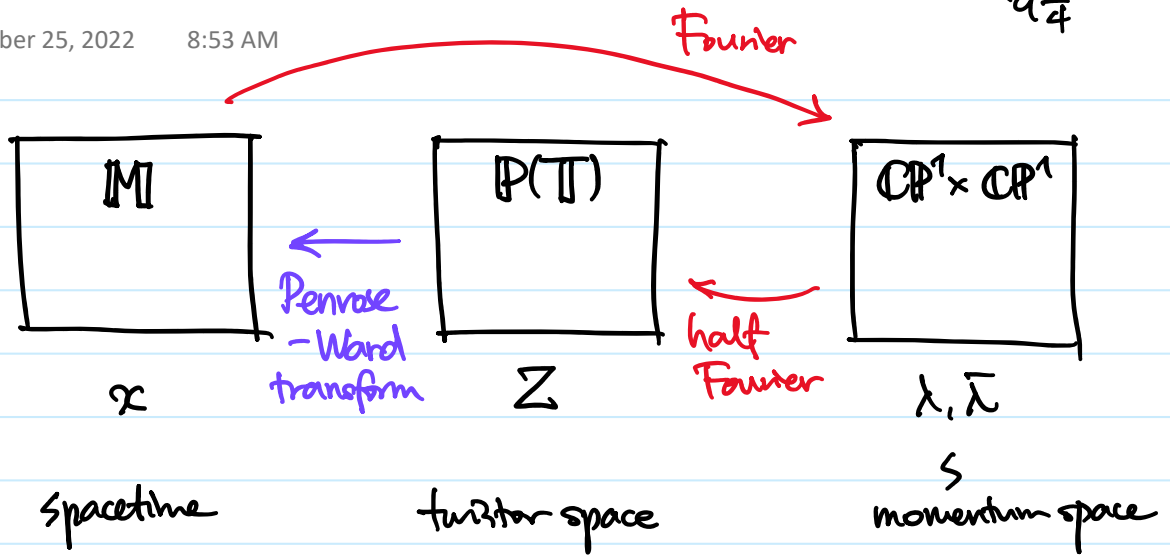 ber 25, 2022 8:53 AM
Fourier
𝕄
ℙ(𝕋)
ℂℙ¹ × ℂℙ¹
Penrose
-Ward
transform
half
Fourier
x
Z
λ, λ̄
spacetime
twistor space
momentum space